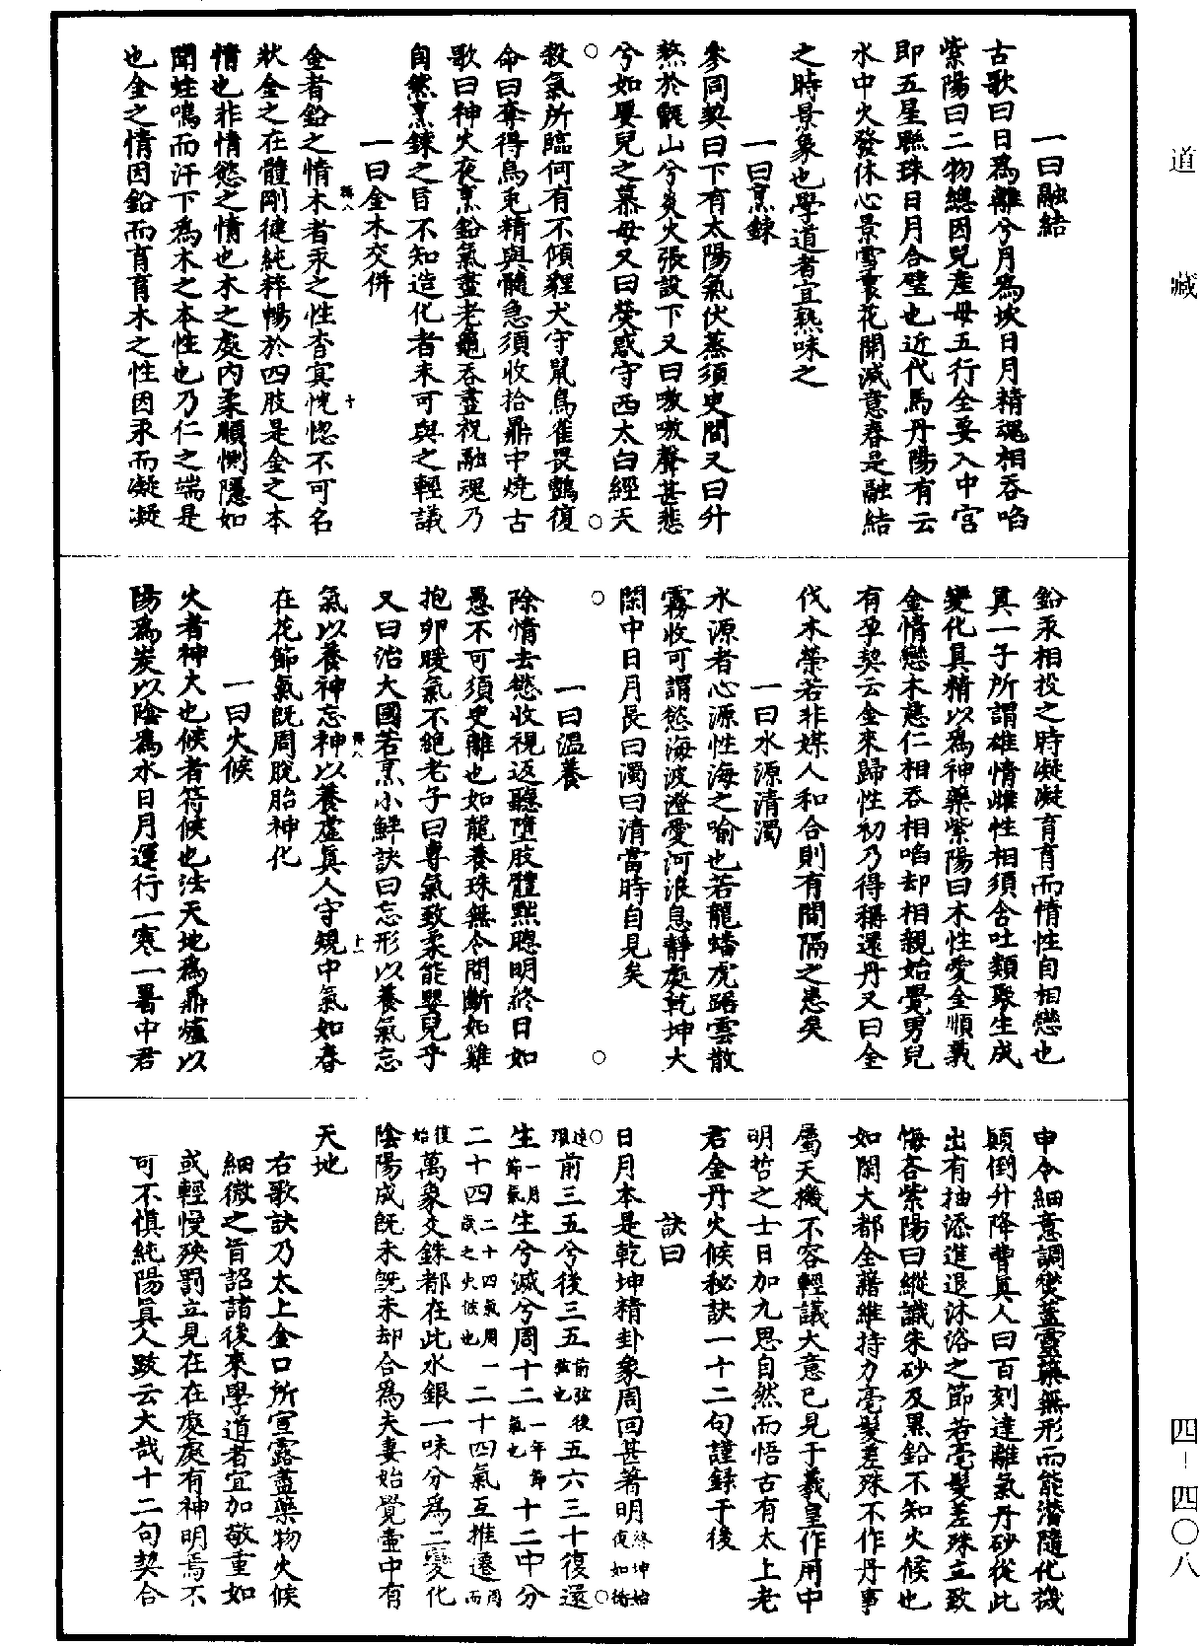 道藏
一曰融結
古歌曰日爲離兮月爲坎日月精魂相吞啗
紫陽曰二物總因兒產母五行全要入中宮
即五星聯珠日月合璧也近代馬丹陽有云
水中火發休心景雪裏花開滅意春是融結
之時景象也學道者宜熟味之
一曰烹鍊
參同契曰下有太陽氣伏蒸須臾間又曰升
熬於甑山兮炎火張設下又曰嗷嗷聲甚悲
兮如嬰兒之慕母又曰熒惑守西太白經天
殺氣所臨何有不傾貍犬守鼠鳥雀畏鸇復
命曰奪得烏兔精與髓急須收拾鼎中燒古
歌曰神火夜烹鉛氣盡老龜吞盡祝融魂乃
自然烹鍊之旨不知造化者未可與之輕議
一曰金木交併
金者鉛之情木者汞之性杳冥恍惚不可名
狀金之在體剛健純粹暢於四肢是金之本
情也非情慾之情也木之處內柔順惻隱如
聞蛙鳴而汗下爲木之本性也乃仁之端是
也金之情因鉛而育育木之性因汞而凝凝
鉛汞相投之時凝凝育育而情性自相戀也
眞一子所謂雄情雌性相須含吐類聚生成
變化眞精以爲神藥紫陽曰木性愛金順義
金情戀木慈仁相吞相啗却相親始覺男兒
有孕契云金來歸性初乃得稱還丹又曰金
伐木榮若非媒人和合則有間隔之患矣
一曰水源清濁
水源者心源性海之喻也若龍蟠虎踞雲散
霧收可謂慾海波澄愛河浪息靜處乾坤大
閑中日月長曰濁曰清當時自見矣
一曰溫養
除情去慾收視返聽墮肢體黜聰明終日如
愚不可須臾離也如龍養珠無令間斷如雞
抱卵暖氣不絕老子曰專氣致柔能嬰兒乎
又曰治大國若烹小鮮訣曰忘形以養氣忘
氣以養神忘神以養虛眞人守規中氣如春
在花節氣旣周脫胎神化
一曰火候
火者神火也候者符候也法天地爲鼎爐以
陽爲炭以陰爲水日月運行一寒一暑中君
申令細意調爕蓋靈藥無形而能潛隨化機
顚倒升降曹眞人曰百刻達離氣丹砂從此
出有抽添進退沐浴之節若毫髮差殊立致
悔吝紫陽曰縱識朱砂及黑鉛不知火候也
如閑大都全藉維持力毫髮差殊不作丹事
屬天機不容輕議大意已見于羲皇作用中
明哲之士日加九思自然而悟古有太上老
君金丹火候秘訣一十二句謹錄于後
訣曰
日月本是乾坤精卦象周回甚著明終坤始復如循
連環前三五兮後三五前弦後弦也五六三十復還
生一月節氣生兮滅兮周十二一年節氣也十二中分
二十四二十四氣周一歲之火候也二十四氣互推遷周而
復始萬象爻銖都在此水銀一味分爲二變化
陰陽成旣未旣未却合爲夫妻始覺壷中有
天地
右歌訣乃太上金口所宣露盡藥物火候
細微之旨詔諸後來學道者宜加敬重如
或輕慢殃罰立見在在處處有神明焉不
可不愼純陽眞人跋云大哉十二句契合
四-四〇八